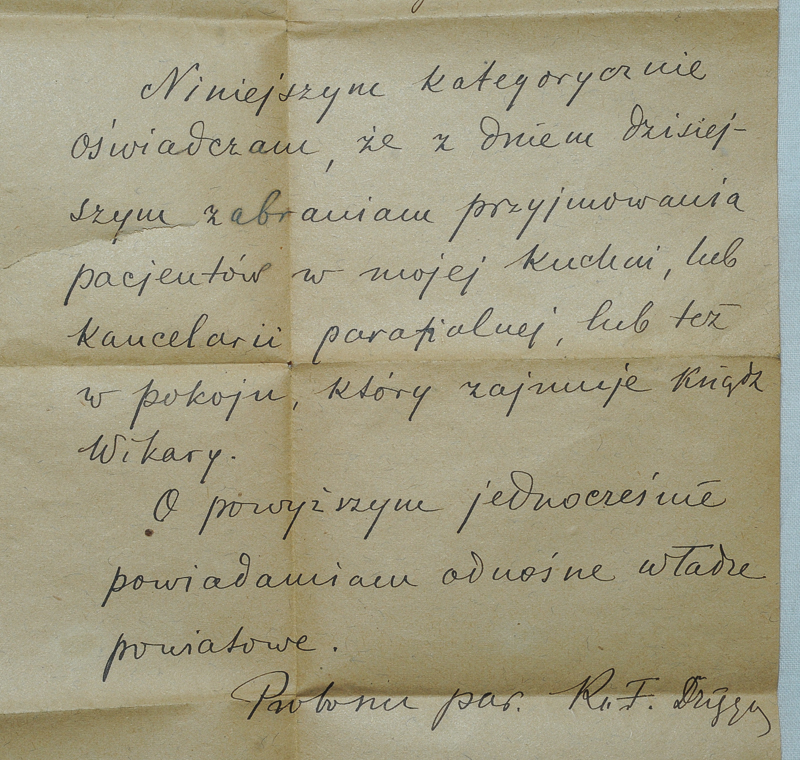 Niniejszym kategorycznie
oświadczam, że z dniem dzisiej-
szym zabraniam przyjmowania
pacjentów w mojej kuchni, lub
kancelarii parafialnej, lub też
w pokoju, który zajmuje ksiądz
Wikary.
O powyższym jednocześnie
powiadamiam odnośne władze
powiatowe.
par. Ks. F.